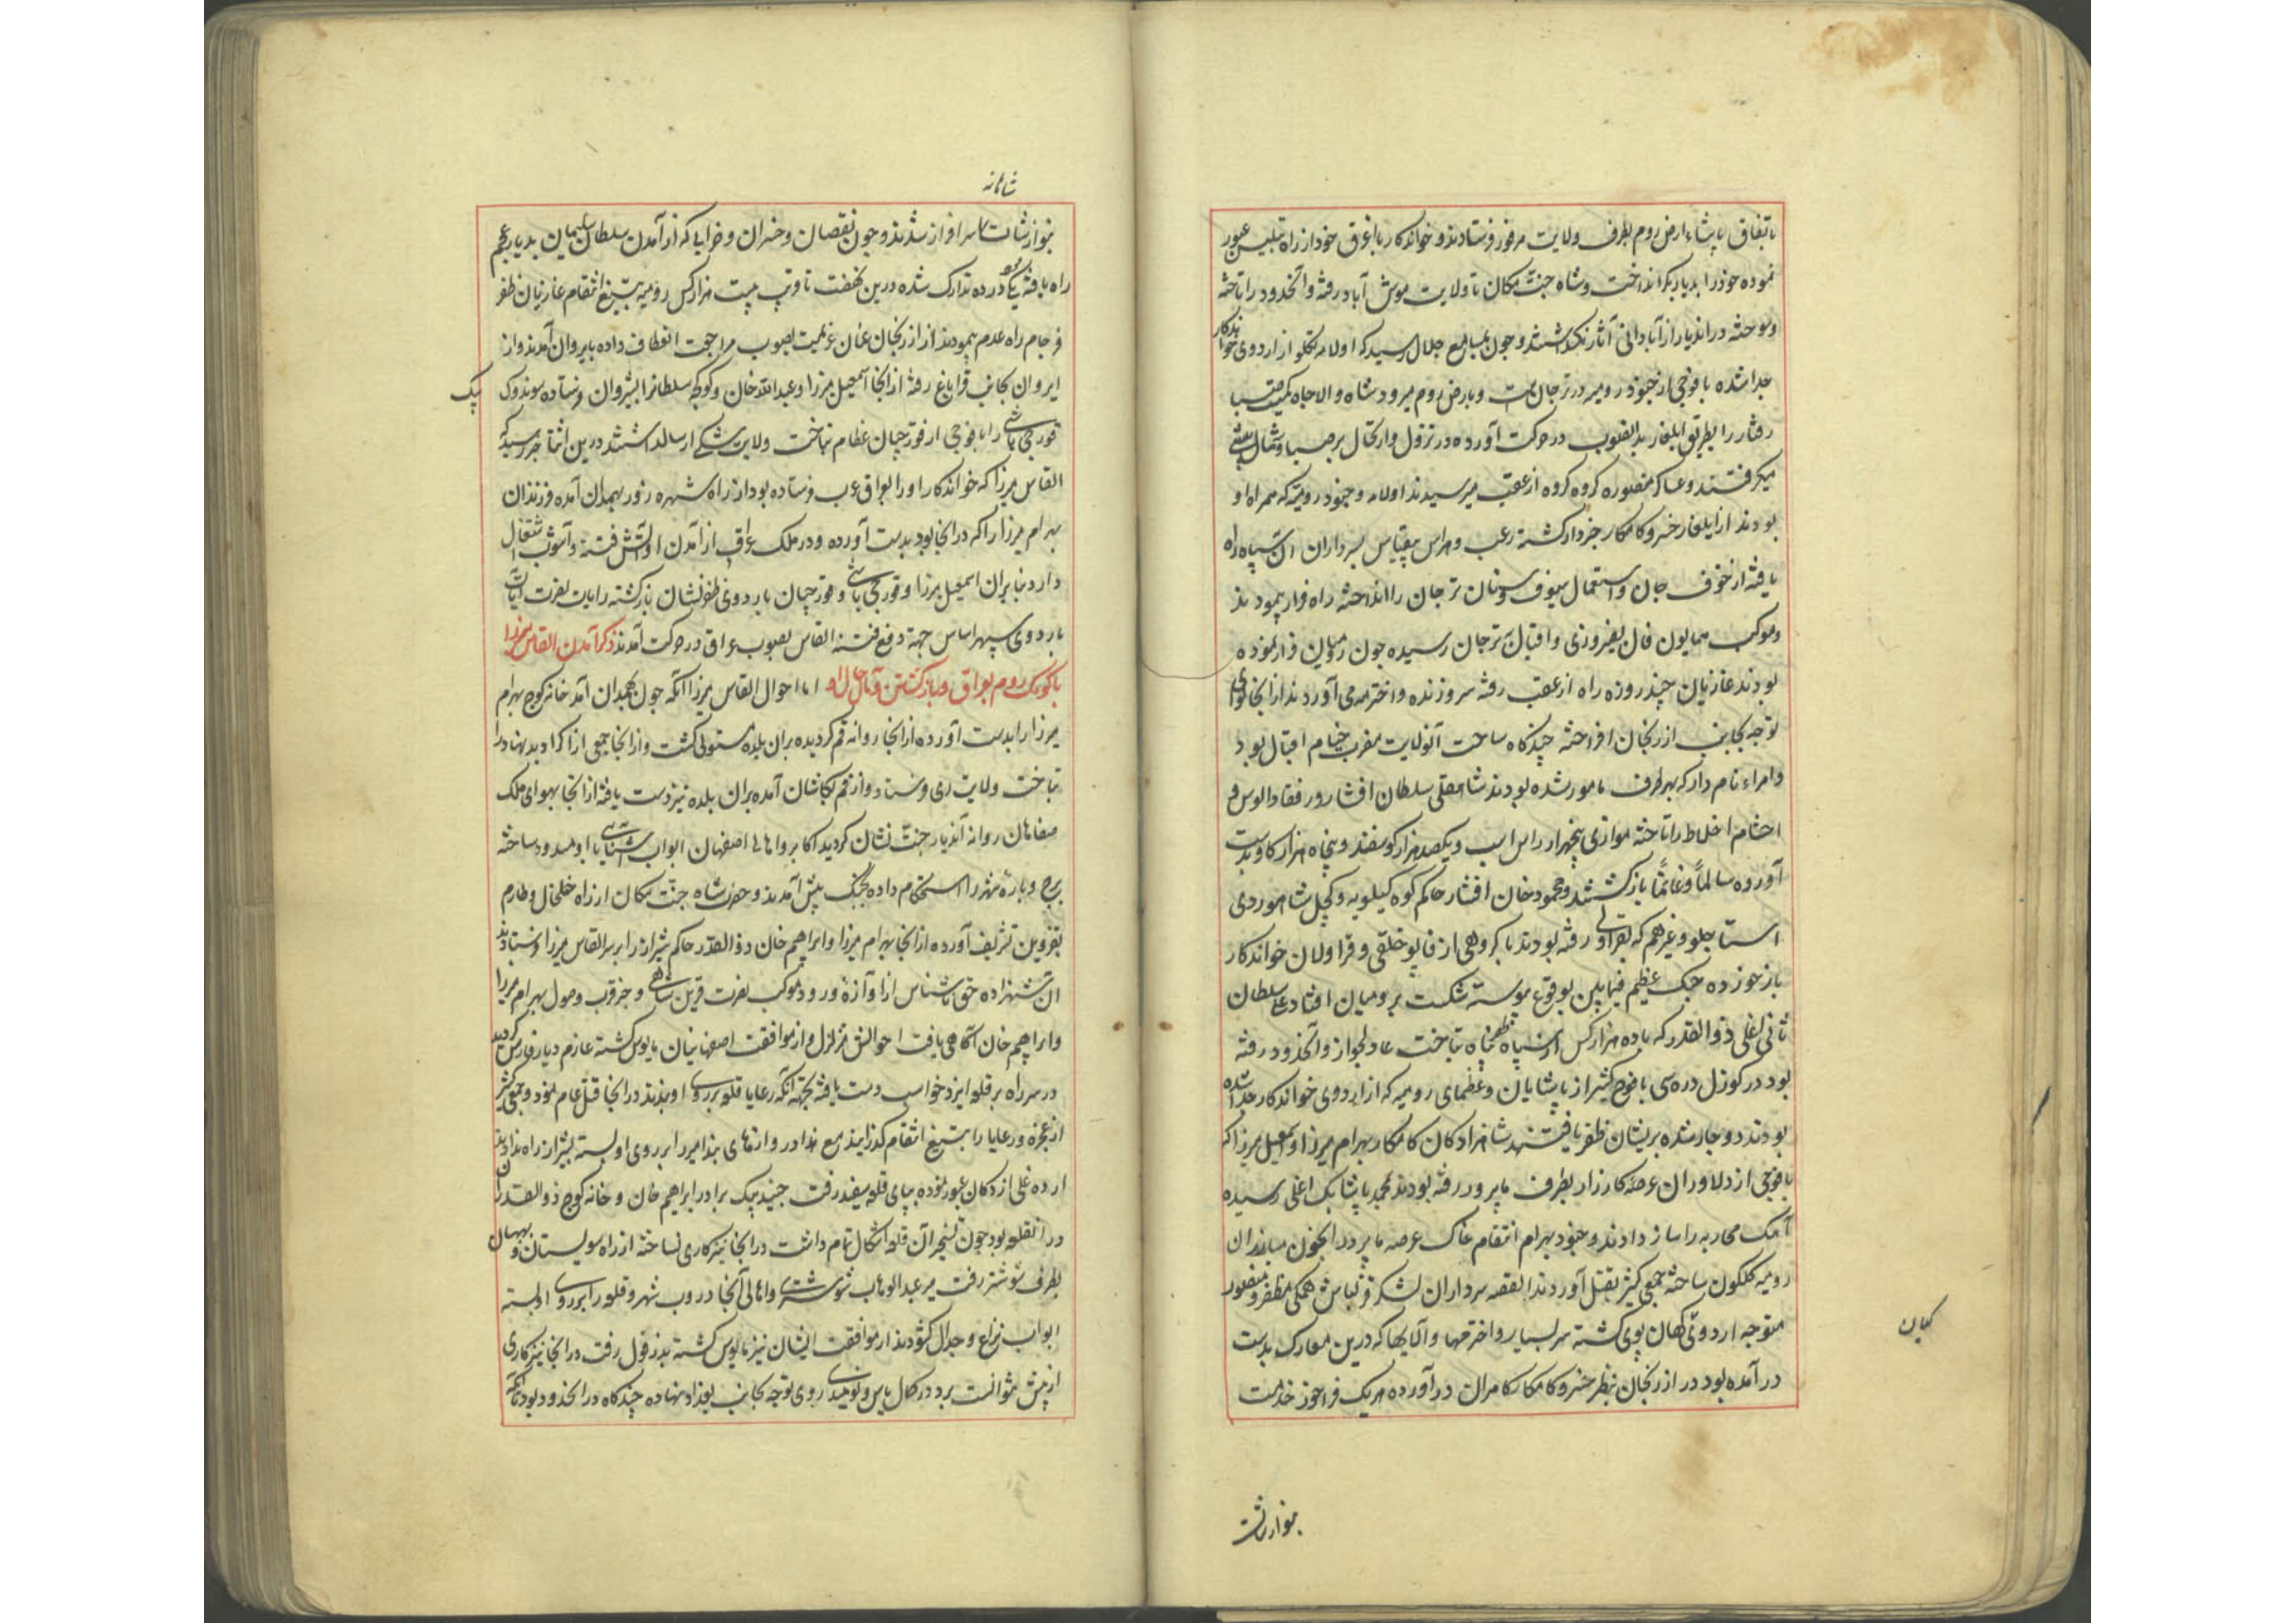 باتفاق پاشاء ارض روم بطرف ولایت مزبور فرستادند و خواندکار با اغرق خود از راه تبلیس عبور
نموده خود را بدیاربکر انداخت و شاه جنت مکان تا ولایت موش آباد رفته و آنحدود را تاخته
و سوخته در اندیار از آبادانی آثار نگذاشتند و چون بمسامع جلال رسید که اولامه تکلو از اردوی خواندکار
جدا شده با فوجی از جنود رومیه در ترجان است و بارض روم میرود شاه والاجاه کمیت صبا
رفتار را بطریق ایلغار بدانصوب در حرکت آورده در نزول و ارتحال بر صبا و شمال پیشی
میگرفتند و عساکر منصوره گروه گروه از عقب میرسیدند اولامه و جنود رومیه که همراه او
بودند از ایلغار خسرو کامکار خبردار گشته رعب و هراس بیقیاس بسرداران آن سپاه راه
یافته از خوف جان و استعمال سیوف و سنان ترجان را انداخته راه فرار پیمودند
و موکب همایون فال بفیروزی و اقبال بترجان رسیده چون رومیان فرار نموده
بودند غازیان چند روزه راه از عقب رفته سر و زنده و اخترمه می آوردند از انجا لوای
توجه بجانب ازرنجان افراخته چندگاه ساحت آنولایت مضرب خیام اقبال بود
و امراء نامدار که بهر طرف مامور شده بودند شاهقلی سلطان افشار و رفقا و الوس و
احشام اخلاط را تاخته موازی پنجهزار راس اسب و یکصد هزار گوسفند و پنجاه هزار گاو بدست
آورده سالماً و غانماً بازگشتند و محمود خان افشار حاکم کوه کیلویه و کچل شاهوردی
استاجلو و غیرهم که بقراولی رفته بودند با گروهی از قاپو خلقی و قراولان خواندکار
بازخورده جنک عظیم فیمابین بوقوع پیوسته شکست بر رومیان افتاد علی سلطان
تاتی اغلی ذوالقدر که با ده هزار کس از سپاه ظفرپناه بتاخت عادلجواز و آنحدود رفته
بود در کوزل دره سی با فوج کثیر از پاشایان و عظمای رومیه که از اردوی خواندکار جدا شده
بودند دوچار شده بریشان ظفر یافتند شاهزادگان کامکار بهرام میرزا و اسمعیل میرزا که
با فوجی از دلاوران عرصه کارزار بطرف پابرد رفته بودند بمحمد پاشا بک اغلی رسیده
آهنک محاربه را ساز دادند و جنود بهرام انتقام خاک عرصه پابرد را بخون مبارزان
رومیه گلگون ساخته جمعی کثیر بقتل آوردند القصه سرداران لشکر قزلباش همکی مظفر و منصور
متوجه اردوی کهان پوی گشته سر بسیار و اخترمها و آلایها که درین معارک بدست
در آمده بود در ازرنجان بنظر خسرو کامکار کامران در آورده هریک فراخور خدمت
بنوازشات
شاهانه
بنوازشات سرافراز شدند و چون نقصان و خسران و خرابی که از آمدن سلطان سلیمان بدیار عجم
راه یافته یکی دو ده تدارک شده درین نهضت تا قریب بیست هزار کس رومیه بتیغ انتقام غازیان ظفر
فرجام راه عدم پیمودند از ازرنجان عنان عزیمت بصوب مراجعت انعطاف داده بایروان آمدند و از
ایروان بجانب قراباغ رفته از انجا اسمعیل میرزا و عبدالله خان و کوکجه سلطانرا بشیروان فرستاده سوندوک بیک
قورچی باشی را با فوجی از قورچیان عظام بتاخت ولایت شکی ارسال داشتند درین اثنا خبر رسید که
القاس میرزا که خواندکار او را بعراق عرب فرستاده بود از راه شهره زور بهمدان آمده فرزندان
بهرام میرزا را که در انجا بود بدست آورده و در ملک عراق از آمدن او آتش فتنه و آشوب اشتعال
دارد بنابران اسمعیل میرزا و قورچی باشی و قورچیان باردوی ظفرنشان بازگشته رایات نصرت آیات
باردوی سپهر اساس جهة دفع فتنه القاس بصوب عراق در حرکت آمدند ذکر آمدن القاس میرزا
بکومک روم بعراق و بازگشتن و مآل حال او اما احوال القاس میرزا آنکه چون بهمدان آمد خانه کوچ بهرام
میرزا را بدست آورده از انجا روانه قم گردیده بران بلده مستولی گشت و از انجا جمعی از اکراد بدنهاد را
بتاخت ولایت ری فرستاد و از قم بکاشان آمده بران بلده نیز دست یافته از انجا بهوای ملک
صفاهان روانه آندیار جنت نشان گردید اکابر و اهالی اصفهان ابواب آشنایی با او مسدود ساخته
برج و باره شهر را استحکام داده بجنک پیش آمدند و حضرت شاه جنت مکان از راه خلخال و طارم
بقزوین تشریف آورده از انجا بهرام میرزا و ابراهیم خان ذوالقدر حاکم شیراز را بر سر القاس میرزا فرستادند
آن شهزاده حق ناشناس از آوازه ورود موکب نصرت قرین شاهی و خبر قرب وصول بهرام میرزا
و ابراهیم خان آگاهی یافت احوالش متزلزل و از موافقت اصفهانیان مایوس گشته عازم دیار فارس گردید
در سر راه بر قلعه ایزدخواست دست یافته بجهة آنکه رعایا قلعه بر روی او بندند در انجا قتل عام نمود و جمعی کثیر
از عجزه و رعایا را بتیغ انتقام گذرانید مع هذا دروازهای بندامیر را بر روی او بسته بشیراز راه ندادند
از ده علی ازدکان عبور نموده بپای قلعه سفید رفت جنید بیک برادر ابراهیم خان و خانه کوچ ذوالقدران
در آنقلعه بود چون تسخیر آن قلعه اشکال تمام داشت در انجا نیز کاری نساخته از راه سولیستان و بهبهان
بطرف شوشتر رفت میر عبدالوهاب شوشتری و اهالی آنجا دروب شهر و قلعه را بر روی او بسته
ابواب نزاع و جدال گشودند از موافقت ایشان نیز مایوس گشته بدزفول رفت در انجا نیز کاری
از پیش نتوانست برد در کمال یاس و نومیدی روی توجه بجانب بغداد نهاده چندگاه در انحدود بود تا آنکه